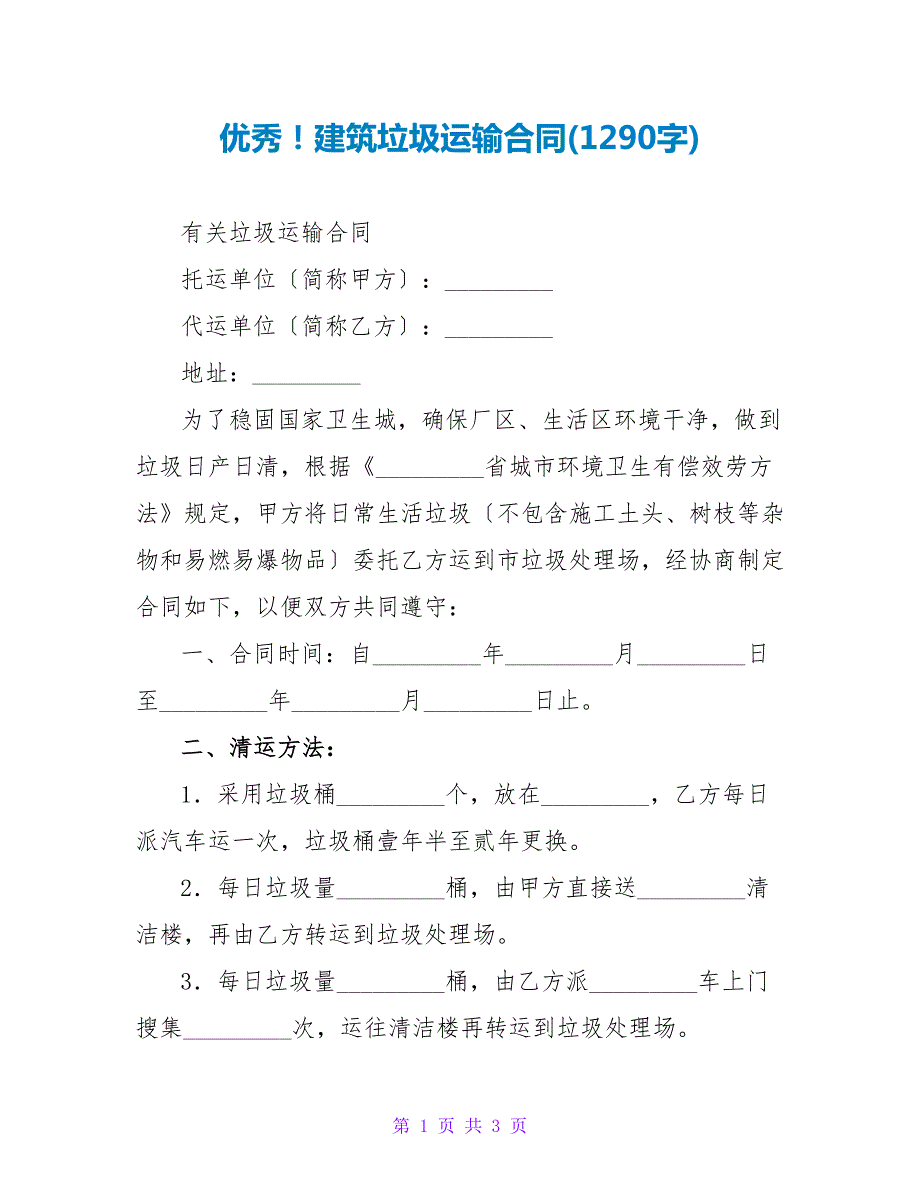 优秀！建筑垃圾运输合同(1290字)
有关垃圾运输合同
托运单位〔简称甲方〕：_________
代运单位〔简称乙方〕：_________
地址：_________
为了稳固国家卫生城，确保厂区、生活区环境干净，做到
垃圾日产日清，根据《_________省城市环境卫生有偿效劳方
法》规定，甲方将日常生活垃圾〔不包含施工土头、树枝等杂
物和易燃易爆物品〕委托乙方运到市垃圾处理场，经协商制定
合同如下，以便双方共同遵守：
一、合同时间：自_________年_________月_________日
至_________年_________月_________日止。
二、清运方法：
1．采用垃圾桶_________个，放在_________，乙方每日
派汽车运一次，垃圾桶壹年半至贰年更换。
2．每日垃圾量_________桶，由甲方直接送_________清
洁楼，再由乙方转运到垃圾处理场。
3．每日垃圾量_________桶，由乙方派_________车上门
搜集_________次，运往清洁楼再转运到垃圾处理场。
第 1 页 共 3 页